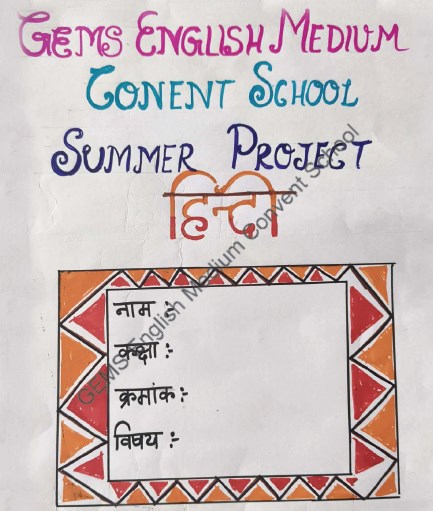 GEMS ENGLISH MEDIUM
CONENT SCHOOL
SUMMER PROJECT
हिन्दी
नाम :-
कक्षा :-
क्रमांक :-
विषय :-
GEMS English Medium Convent School